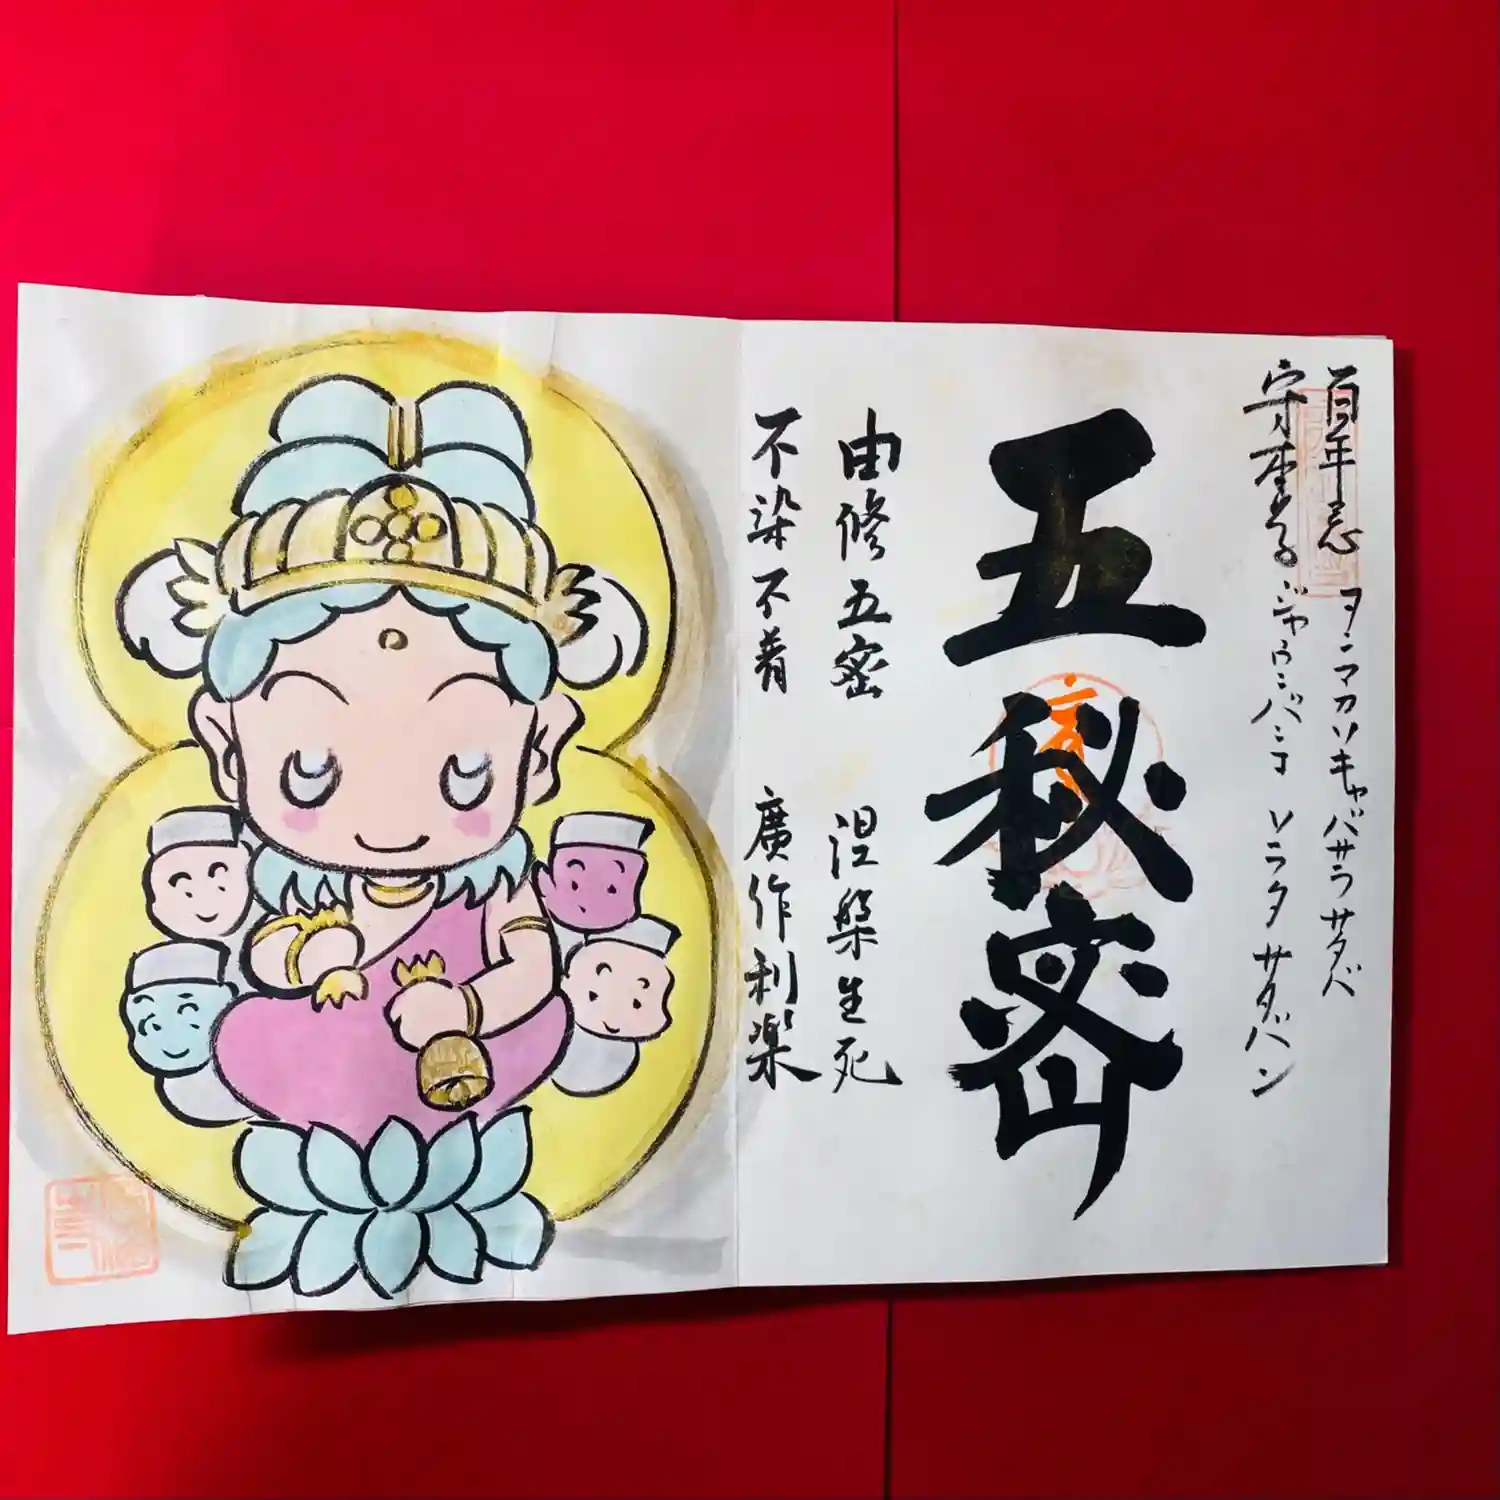 百年忌 ヲンマカソキャバサラサタバ
守本尊 ジャウンバンコ ソラタ サタバン
五秘密
由修五密 涅槃生死
不染不着 廣作利楽